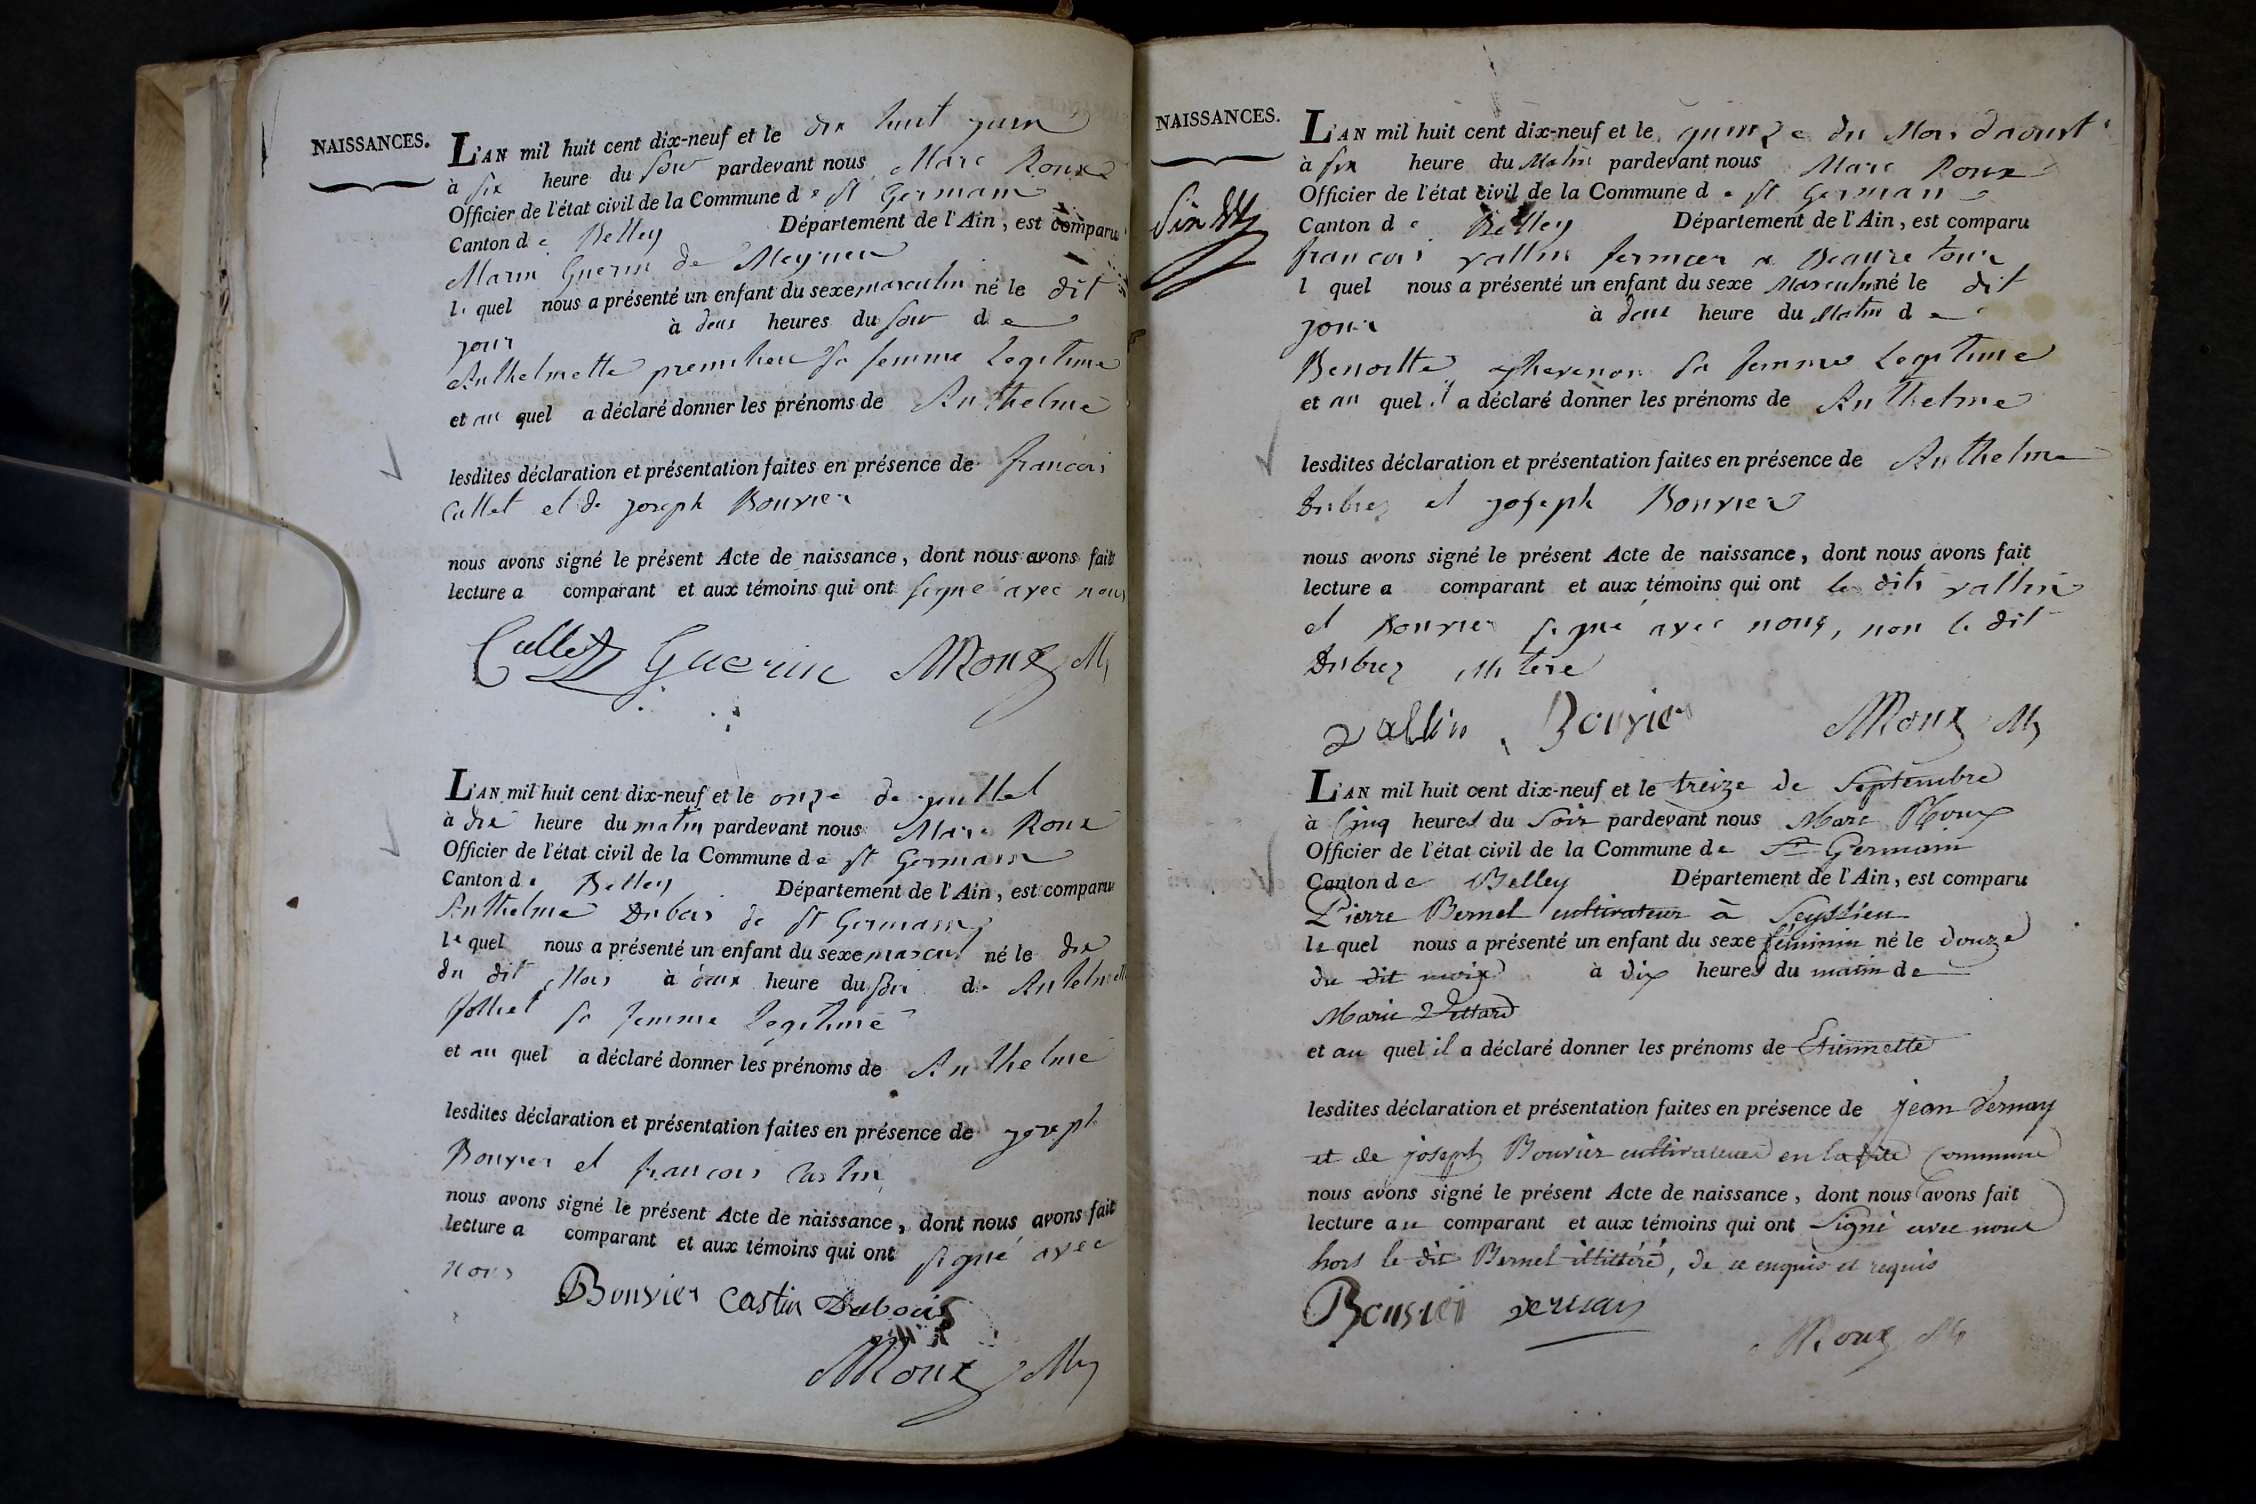 NAISSANCES.
L'AN mil huit cent dix-neuf et le dix huit juin
à six heure du soir pardevant nous Marc Roux
Officier de l'état civil de la Commune de st Germain
Canton de Belley Département de l'Ain, est comparu
Marin Guerin de Meyrieu
le quel nous a présenté un enfant du sexe masculin né le dit
jour à deux heures du soir de
Anthelmette sa femme Legitime
et au quel a déclaré donner les prénoms de Anthelme
lesdites déclaration et présentation faites en présence de francois
Cullet et de joseph Bouvier
nous avons signé le présent Acte de naissance, dont nous avons fait
lecture a comparant et aux témoins qui ont signé avec nous
Cullet Guerin MRoux M
L'AN mil huit cent dix-neuf et le onze de juillet
à dix heure du matin pardevant nous Marc Roux
Officier de l'état civil de la Commune de st Germain
Canton de Belley Département de l'Ain, est comparu
Anthelme Dubois de st Germain
le quel nous a présenté un enfant du sexe mascul né le dix
du dit Mois à deux heure du soir de
sa femme legitime
et au quel a déclaré donner les prénoms de Anthelme
lesdites déclaration et présentation faites en présence de joseph
Bouvier et francois Castin
nous avons signé le présent Acte de naissance, dont nous avons fait
lecture a comparant et aux témoins qui ont signé avec
nous
Bouvier Castin Dubois
MRoux M
NAISSANCES.
L'AN mil huit cent dix-neuf et le quinze du Mois daoust
à six heure du Matin pardevant nous Marc Roux
Officier de l'état civil de la Commune de st Germain
Canton de Belley Département de l'Ain, est comparu
francois vallin fermier a Beauretour
l quel nous a présenté un enfant du sexe Masculin né le dit
jour à deux heure du Matin de
Benoitte thevenon sa femme Legitime
et au quel il a déclaré donner les prénoms de Anthelme
lesdites déclaration et présentation faites en présence de Anthelme
Dubrez et joseph Bouvier
nous avons signé le présent Acte de naissance, dont nous avons fait
lecture a comparant et aux témoins qui ont les dits vallin
et Bouvier signé avec nous, non le dit
Dubrez
vallin Bouvier MRoux M
L'AN mil huit cent dix-neuf et le treize de Septembre
à Cinq heures du Soir pardevant nous Marc Roux
Officier de l'état civil de la Commune de St Germain
Canton de Belley Département de l'Ain, est comparu
Pierre Bernel cultivateur à Seyssieu
le quel nous a présenté un enfant du sexe féminin né le douze
du dit mois à dix heures du matin de
Marie
et au quel il a déclaré donner les prénoms de Etiennette
lesdites déclaration et présentation faites en présence de jean Vernay
et de joseph Bouvier cultivateurs en la dite Commune
nous avons signé le présent Acte de naissance, dont nous avons fait
lecture au comparant et aux témoins qui ont Signé avec nous
hors le dit Bernel illittéré, de ce enquis et requis
Bouvier vernay
MRoux M